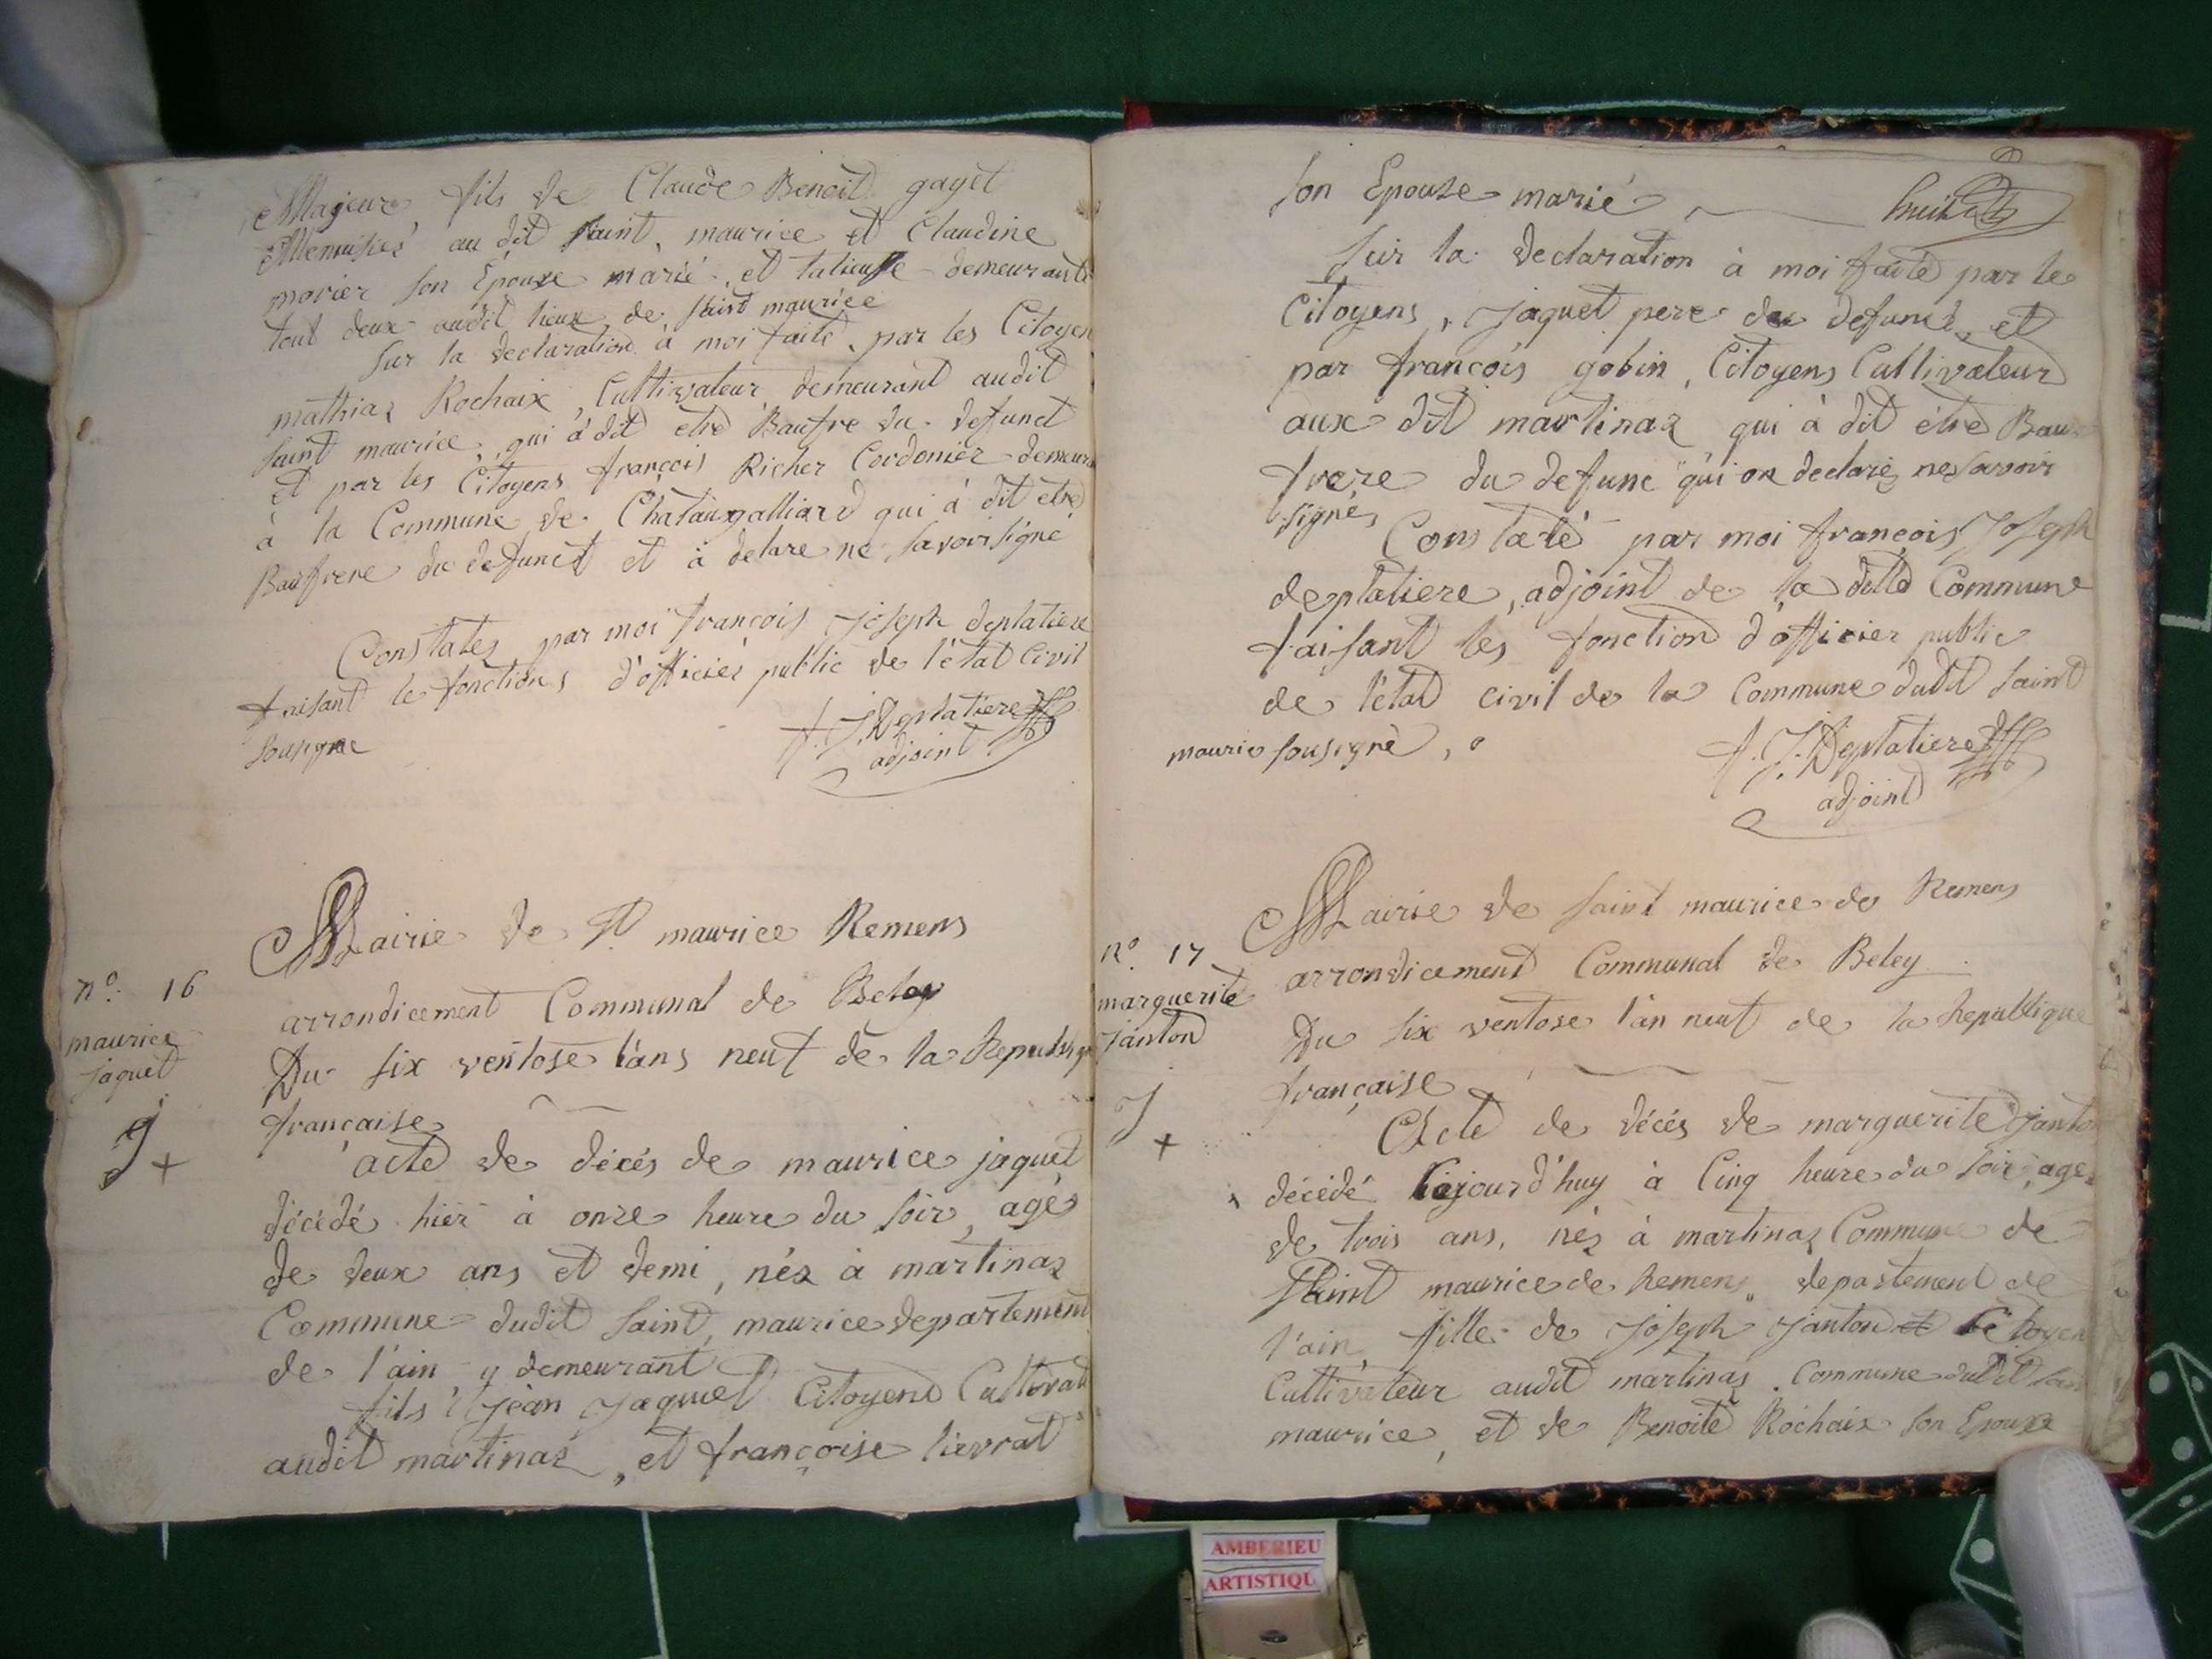 Majeur, fils de Claude Benoit gayet
Menuisier au dit saint, maurice et Claudine
morier son Epouse marié, et talieuse demeurants
tout deux audit lieux de saint maurice
Sur la declaration à moi faite, par les Citoyen
mathias Rochaix, Cultivateur, demeurant audit
saint maurice, qui à dit etre Baufre du defunct
et par les Citoyens françois Richer Cordonier demeura
à la Commune de Chataugalliard qui à dit etre
Baufrere du defunct et à delare ne savoir signé
Constatez par moi françois Joseph deplatiere
faisant le fonctions d'officier public de l'état Civil
sousigne
f. J. Deplatiere
adjoint
Mairie de St maurice Remens
n.º 16
maurice
jaquet
J
+
arrondicement Communal de Beley
Du six ventose l'ans neuf de la Republique
française
acte de décés de maurice jaquet
décédé hier à onze heure du soir, agés
de deux ans et demi, néz à martinaz
Commune dudit saint, maurice departement
de l'ain y demeurant
fils Jean Jaquet Citoyens Cultivat
audit martinaz, et françoise liévrat
son Epouse marié
Sur la declaration à moi faite par le
Citoyens, Jaquet pere du defunct, et
par françois gobin, Citoyens Cultivateur
aux dit martinaz qui à dit étre Bau
frere du defunc qui on declaré ne savoir
signés
Constaté par moi françois Joseph
deplatiere, adjoint de la ditte Commune
faisant les fonction d'officier public
de l'état civil de la Commune dudit saint
maurie sousigné,
f. J. Deplatiere
adjoint
Mairie de saint maurice de Remens
nº. 17
marguerite
janton
J
+
arrondicement Communal de Beley
Du six ventose l'an neuf de la Republique
française
Acte de décés de marguerite janton
décédé aujourd'huy à Cinq heure du soir, age
de trois ans, néz à martinaz Commune de
Saint maurice de Remens, departement de
l'ain, fille de Joseph Janton et Citoyen
Cultivateur audit martinaz, Commune dudit sain
maurice, et de Benoite Rochaix son Epouse